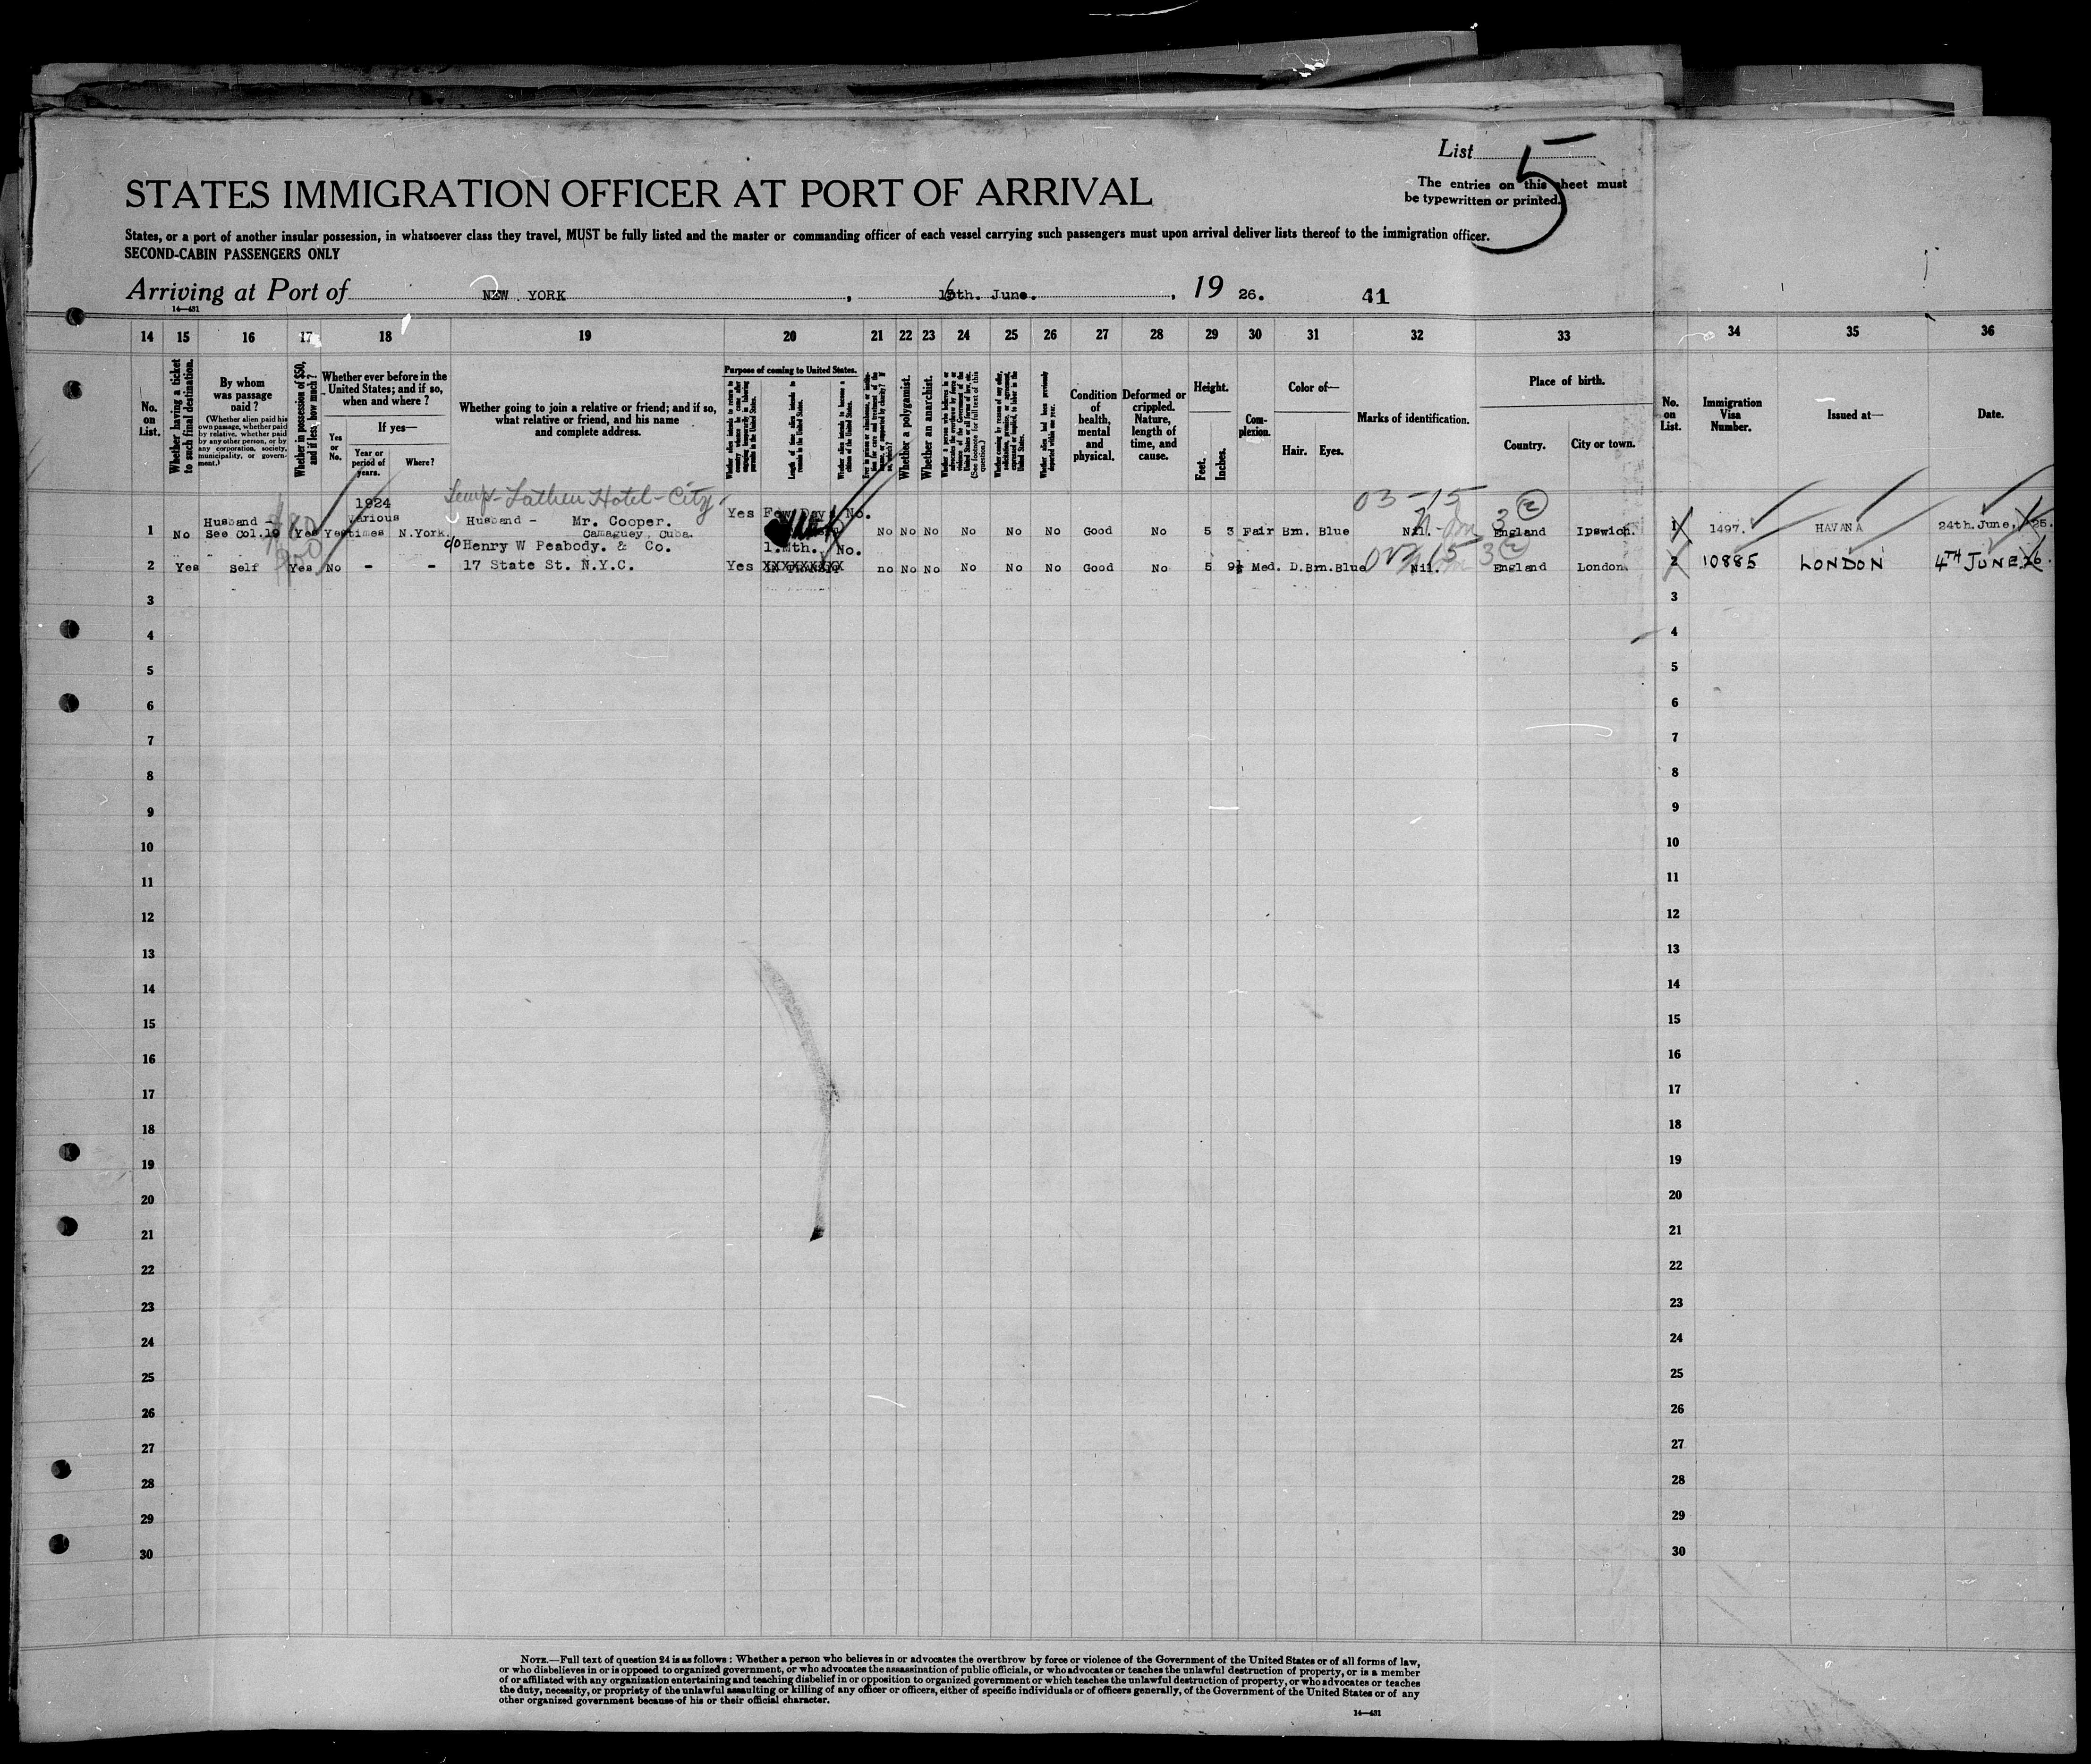 List 5
The entries on this sheet must
be typewritten or printed.
STATES IMMIGRATION OFFICER AT PORT OF ARRIVAL
States, or a port of another insular possession, in whatsoever class they travel, MUST be fully listed and the master or commanding officer of each vessel carrying such passengers must upon arrival deliver lists thereof to the immigration officer.
SECOND-CABIN PASSENGERS ONLY
Arriving at Port of NEW YORK, 16th. June., 19 26. 41
14—431
14 15 16 17 18 19 20 21 22 23 24 25 26 27 28 29 30 31 32 33 34 35 36
No. on List.
Whether having a ticket to such final destination.
By whom was passage paid?
(Whether alien paid his own passage, whether paid by relative, whether paid by any other person, or by any corporation, society, municipality, or government.)
Whether in possession of $50, and if less, how much?
Whether ever before in the United States; and if so, when and where?
Yes or No.
If yes—
Year or period of years.
Where?
Whether going to join a relative or friend; and if so, what relative or friend, and his name and complete address.
Purpose of coming to United States.
Length of time alien intends to remain in the United States.
Whether alien intends to become a citizen of the United States.
Whether a polygamist.
Whether an anarchist.
(See footnote for full text of this question.)
Condition of health, mental and physical.
Deformed or crippled. Nature, length of time, and cause.
Height.
Feet. Inches.
Complexion.
Color of—
Hair. Eyes.
Marks of identification.
Place of birth.
Country. City or town.
No. on List.
Immigration Visa Number.
Issued at—
Date.
Hotel-City
1924 03-15
1 No Husband - See Col.19 Yes Yes various times N.York. Husband - Mr. Cooper. Camaguey, Cuba. Yes Few Days No. No No No No No No Good No 5 3 Fair Brn. Blue Nil. England Ipswich. 1 1497. HAVANA 24th.June, 25.
2 Yes Self Yes No - - c/o Henry W Peabody. & Co. 17 State St. N.Y.C. Yes 1.Mth. No. no No No No No No Good No 5 9½ Med. D.Brn. Blue Nil. England London. 2 10885 LONDON 4TH JUNE. 26.
3 3
4 4
5 5
6 6
7 7
8 8
9 9
10 10
11 11
12 12
13 13
14 14
15 15
16 16
17 17
18 18
19 19
20 20
21 21
22 22
23 23
24 24
25 25
26 26
27 27
28 28
29 29
30 30
NOTE.—Full text of question 24 is as follows: Whether a person who believes in or advocates the overthrow by force or violence of the Government of the United States or of all forms of law,
or who disbelieves in or is opposed to organized government, or who advocates the assassination of public officials, or who advocates or teaches the unlawful destruction of property, or is a member
of or affiliated with any organization entertaining and teaching disbelief in or opposition to organized government or which teaches the unlawful destruction of property, or who advocates or teaches
the duty, necessity, or propriety of the unlawful assaulting or killing of any officer or officers, either of specific individuals or of officers generally, of the Government of the United States or of any
other organized government because of his or their official character.
14—431